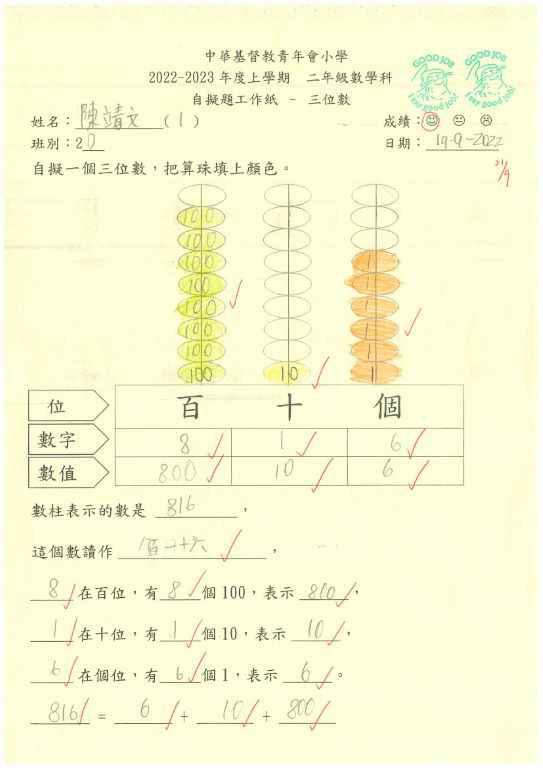 中華基督教青年會小學
2022-2023 年度上學期 二年級數學科
自擬題工作紙 - 三位數
GOOD JOB
I say good job!
GOOD JOB
I say good job!
姓名：陳靖文（1）
成績：
班別：2D
日期：19-9-2022
21/9
自擬一個三位數，把算珠填上顏色。
100
100
100 1
100 1
100 1
100 1
100 1
100 10 1
位 百 十 個
數字 8 1 6
數值 800 10 6
數柱表示的數是 816，
這個數讀作 八百一十六，
8 在百位，有 8 個 100，表示 800，
1 在十位，有 1 個 10，表示 10，
6 在個位，有 6 個 1，表示 6。
816 = 6 + 10 + 800